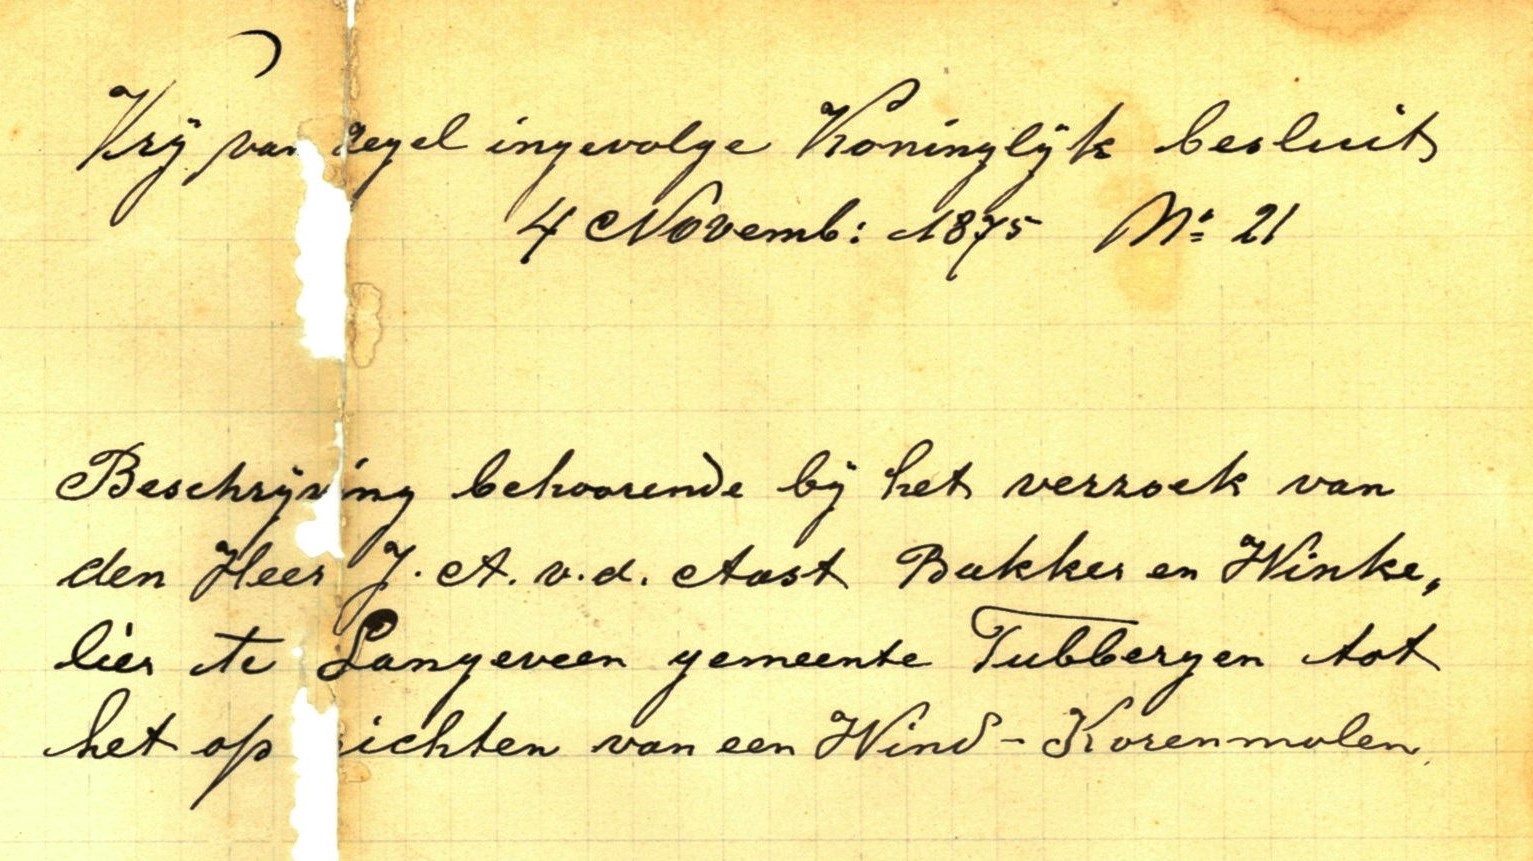 Vrij van zegel ingevolge Koninglijk besluit
4 Novemb: 1875 No 21
Beschrijving behoorende bij het verzoek van
den Heer J. A. v.d. Aast Bakker en Winke„
lier te Langeveen gemeente Tubbergen tot
het oprichten van een Wind-Korenmolen.